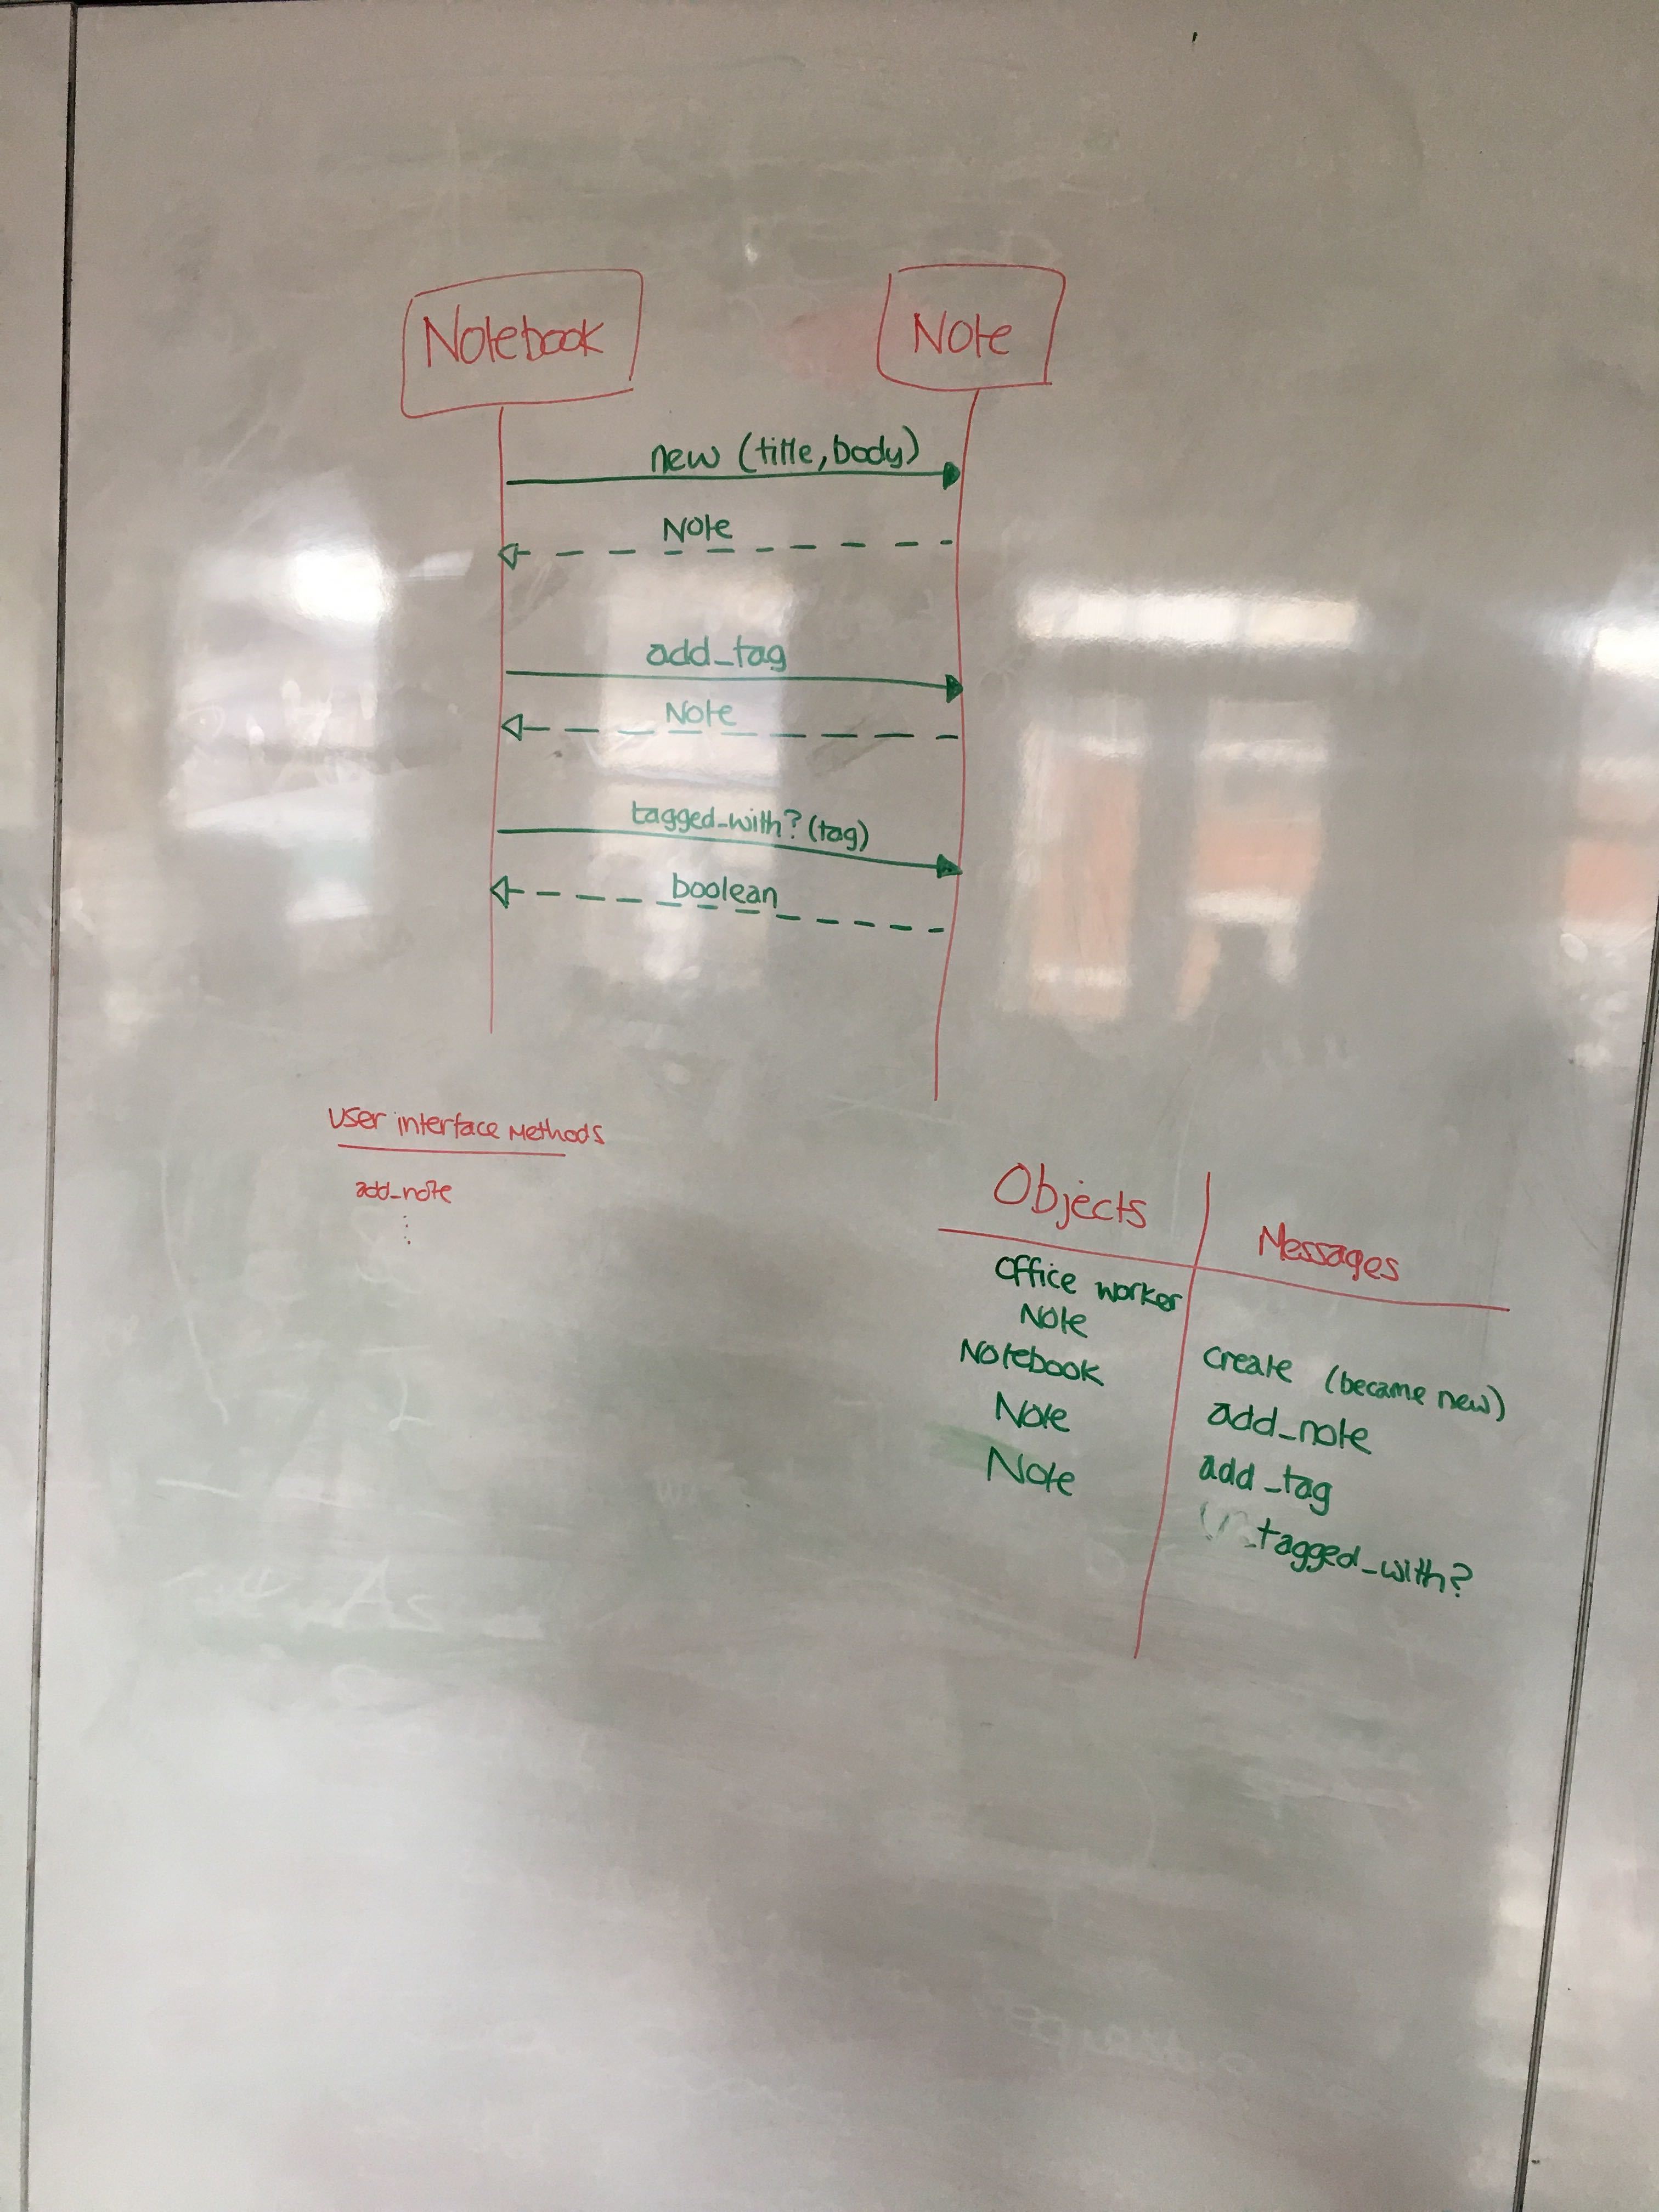 Notebook
Note
new (title, body)
Note
add_tag
Note
tagged_with? (tag)
boolean
User interface Methods
add_note
Objects
Messages
Office worker
Note
Notebook
create (became new)
Note
add_note
Note
add_tag
tagged_with?